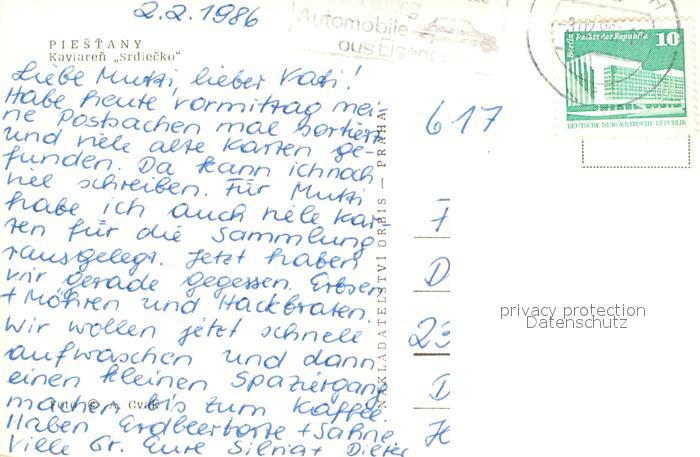 2.2.1986
Automobile
aus Eisenach
PIEŠŤANY
Kaviareň „Srdiečko“
Liebe Mutti, lieber Vati!
Habe heute vormittag mei-
ne Postsachen mal sortiert
und viele alte Karten ge-
funden. Da kann ich noch
viel schreiben. Für Mutti
habe ich auch viele Kar-
ten für die Sammlung
rausgelegt. Jetzt haben
wir gerade gegessen. Erbsen
+ Möhren und Hackbraten.
Wir wollen jetzt schnell
aufwaschen und dann
einen kleinen Spaziergang
machen bis zum Kaffee.
Haben Erdbeertorte + Sahne
Viele Gr. Eure Silvia + Dieter
Foto © A. Cvak
NAKLADATELSTVÍ ORBIS — PRAHA
617
F
D
23
D
H
Berlin Palast der Republik 10
DEUTSCHE DEMOKRATISCHE REPUBLIK
privacy protection
Datenschutz